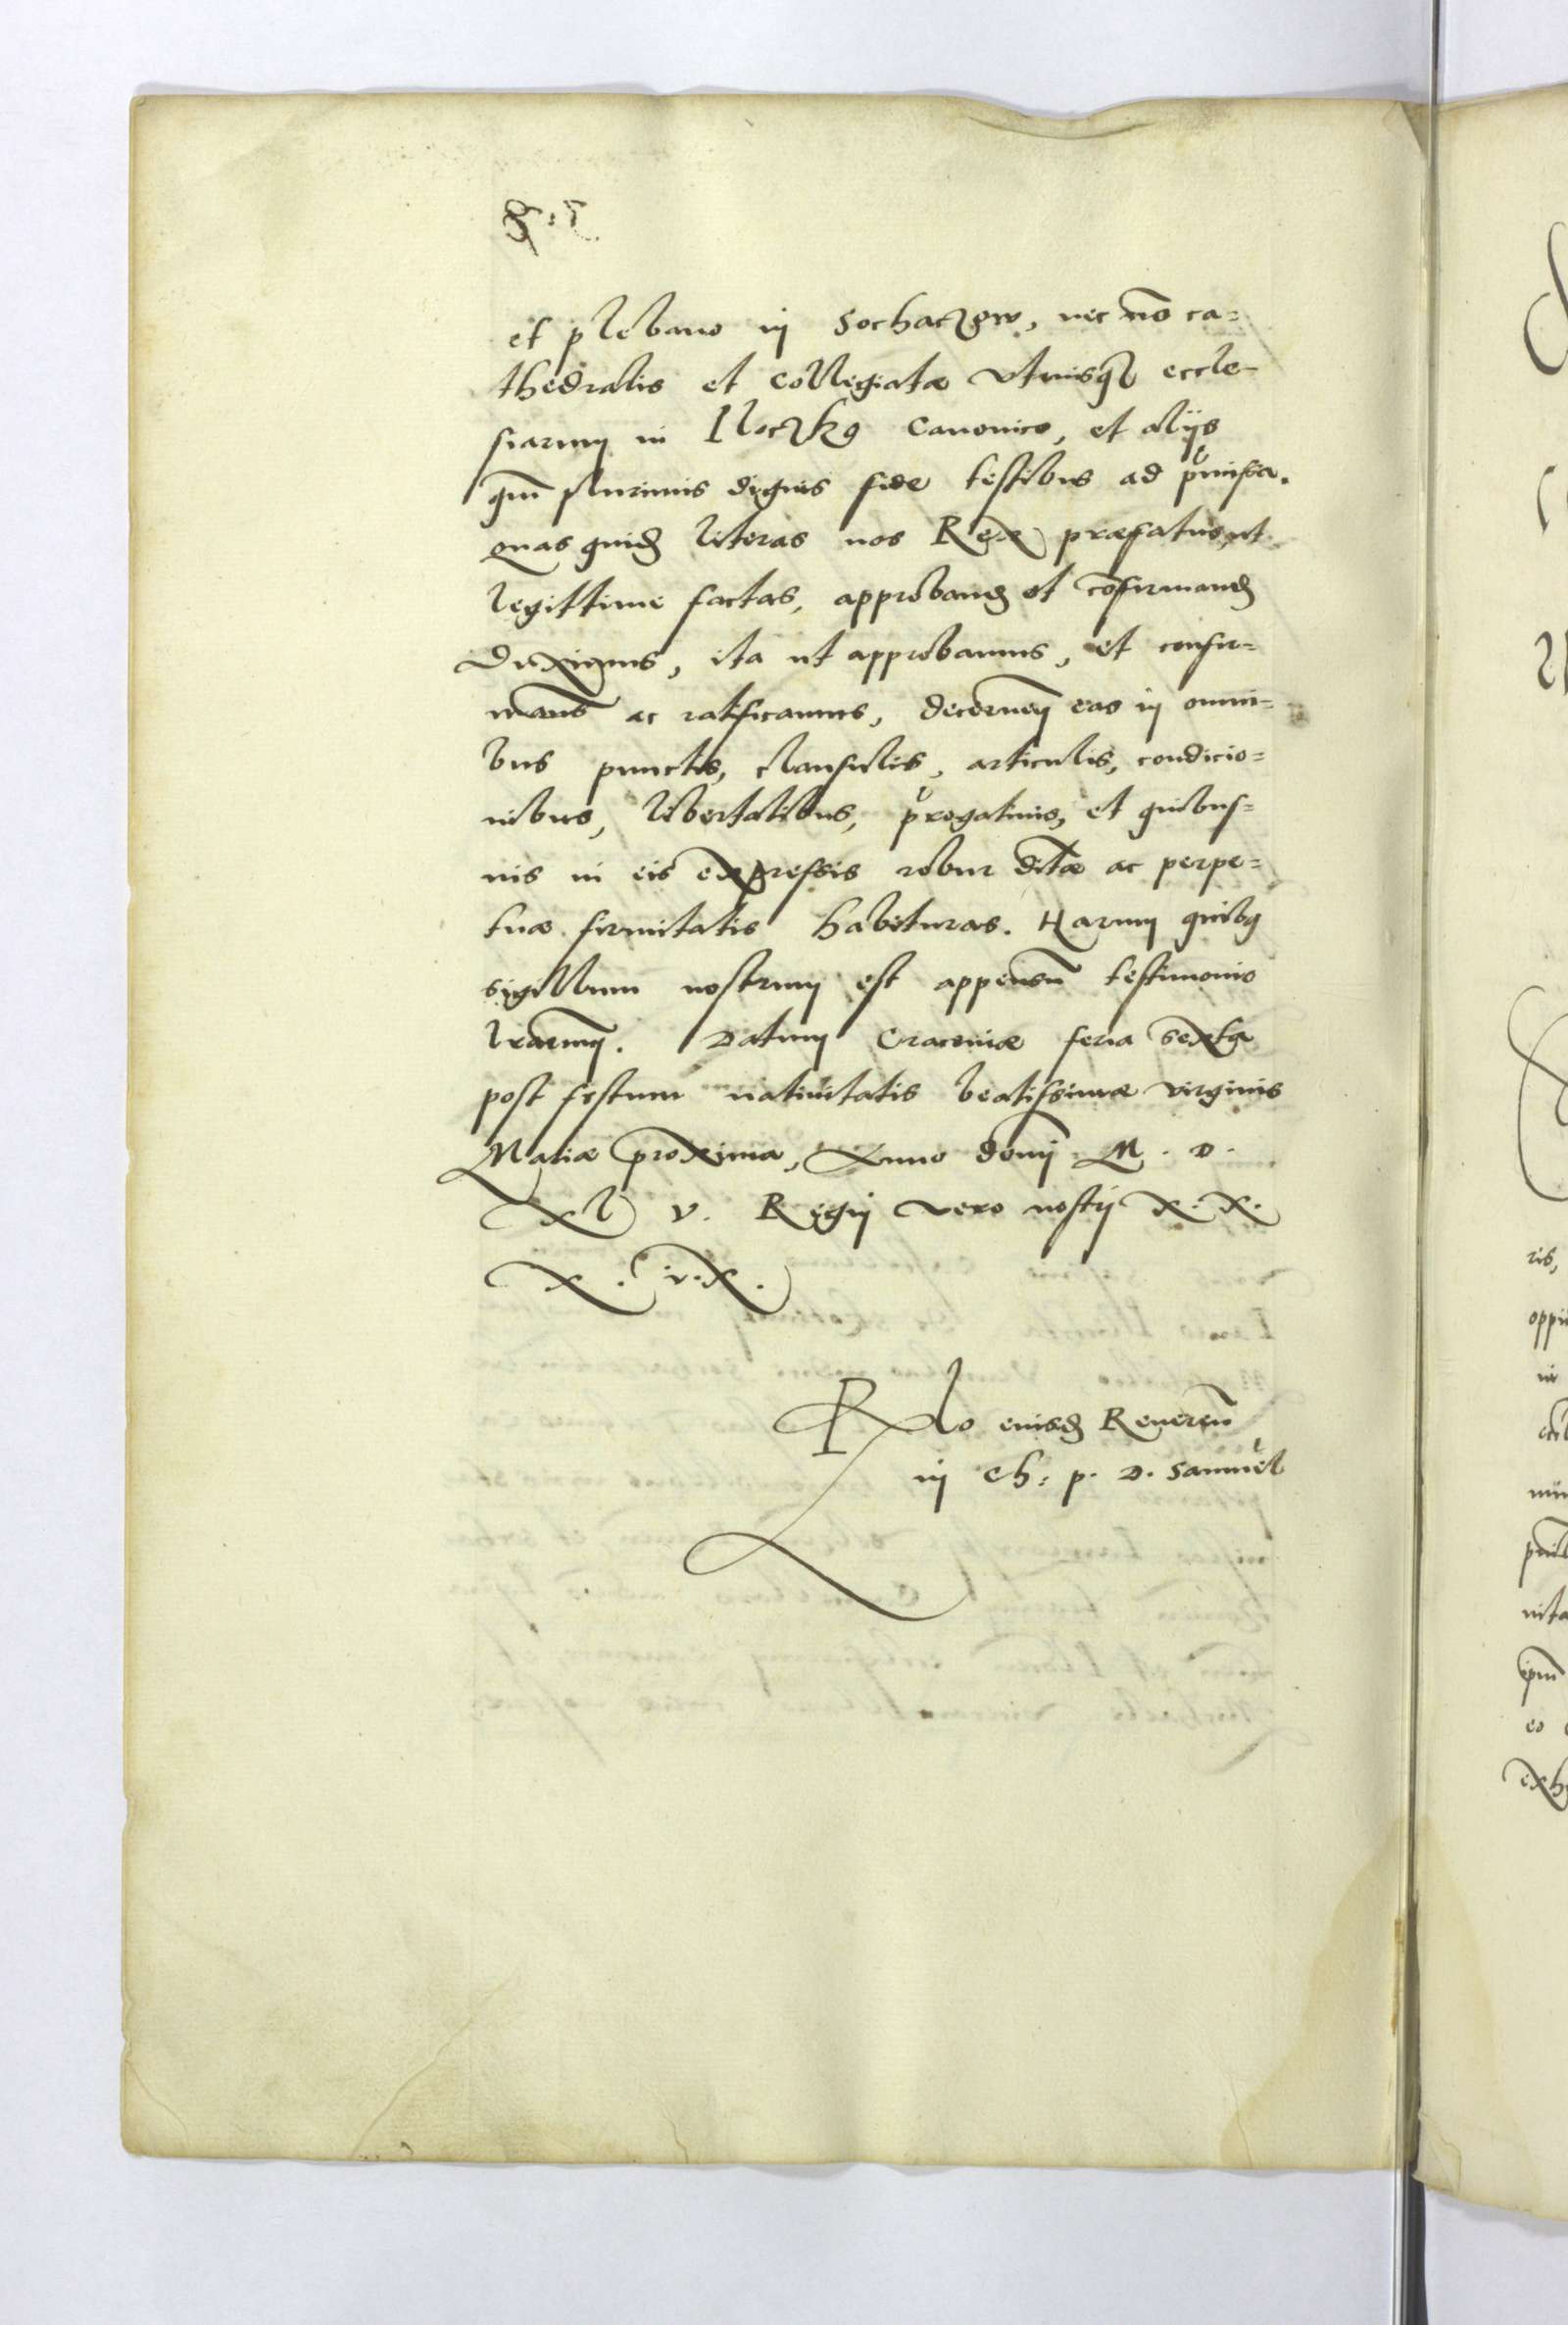 et plebano in Sochaczew, nec nō ca=
thedralis et collegiatæ vtriusq₃ eccle-
siarum in Ploczko Canonico, et alijs
qm̄ plurimis dignis fide testibus ad p̄missa.
quas quid₃ literas nos Rex præfatus, ut
legittime factas, approband₃ et cōfirmand₃
duximus, ita ut approbamus, et confir=
mam̄s ac ratificamus, decernen̄ eas in omni=
bus punctis, clausulis, articulis, condicio=
nibus, libertatibus, p̄rogatiuis, et quibus=
uis in eis expressis robur ditæ ac perpe=
tuæ firmitatis habituras. Harum quibq
sigillum nostrum est appensū testimonio
lrarum̄. Datum Cracouiæ feria sexta
post festum natiuitatis beatissimæ virginis
Mariæ proxima, Anno domī M. D.
xl v. Regij vero nostrj X. X.
X. v. X.
Rlo eiusd₃ Reueren̄
in Ch: p. D. Samuel